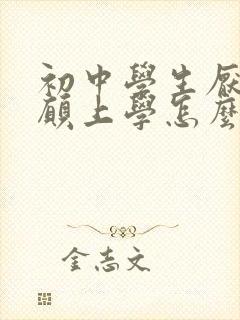 初中學生厭
願上學怎麼
金志文